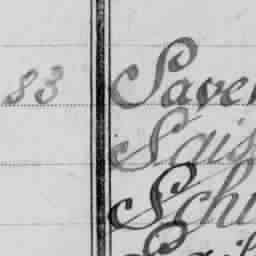 83 Saver
Sais
Schu